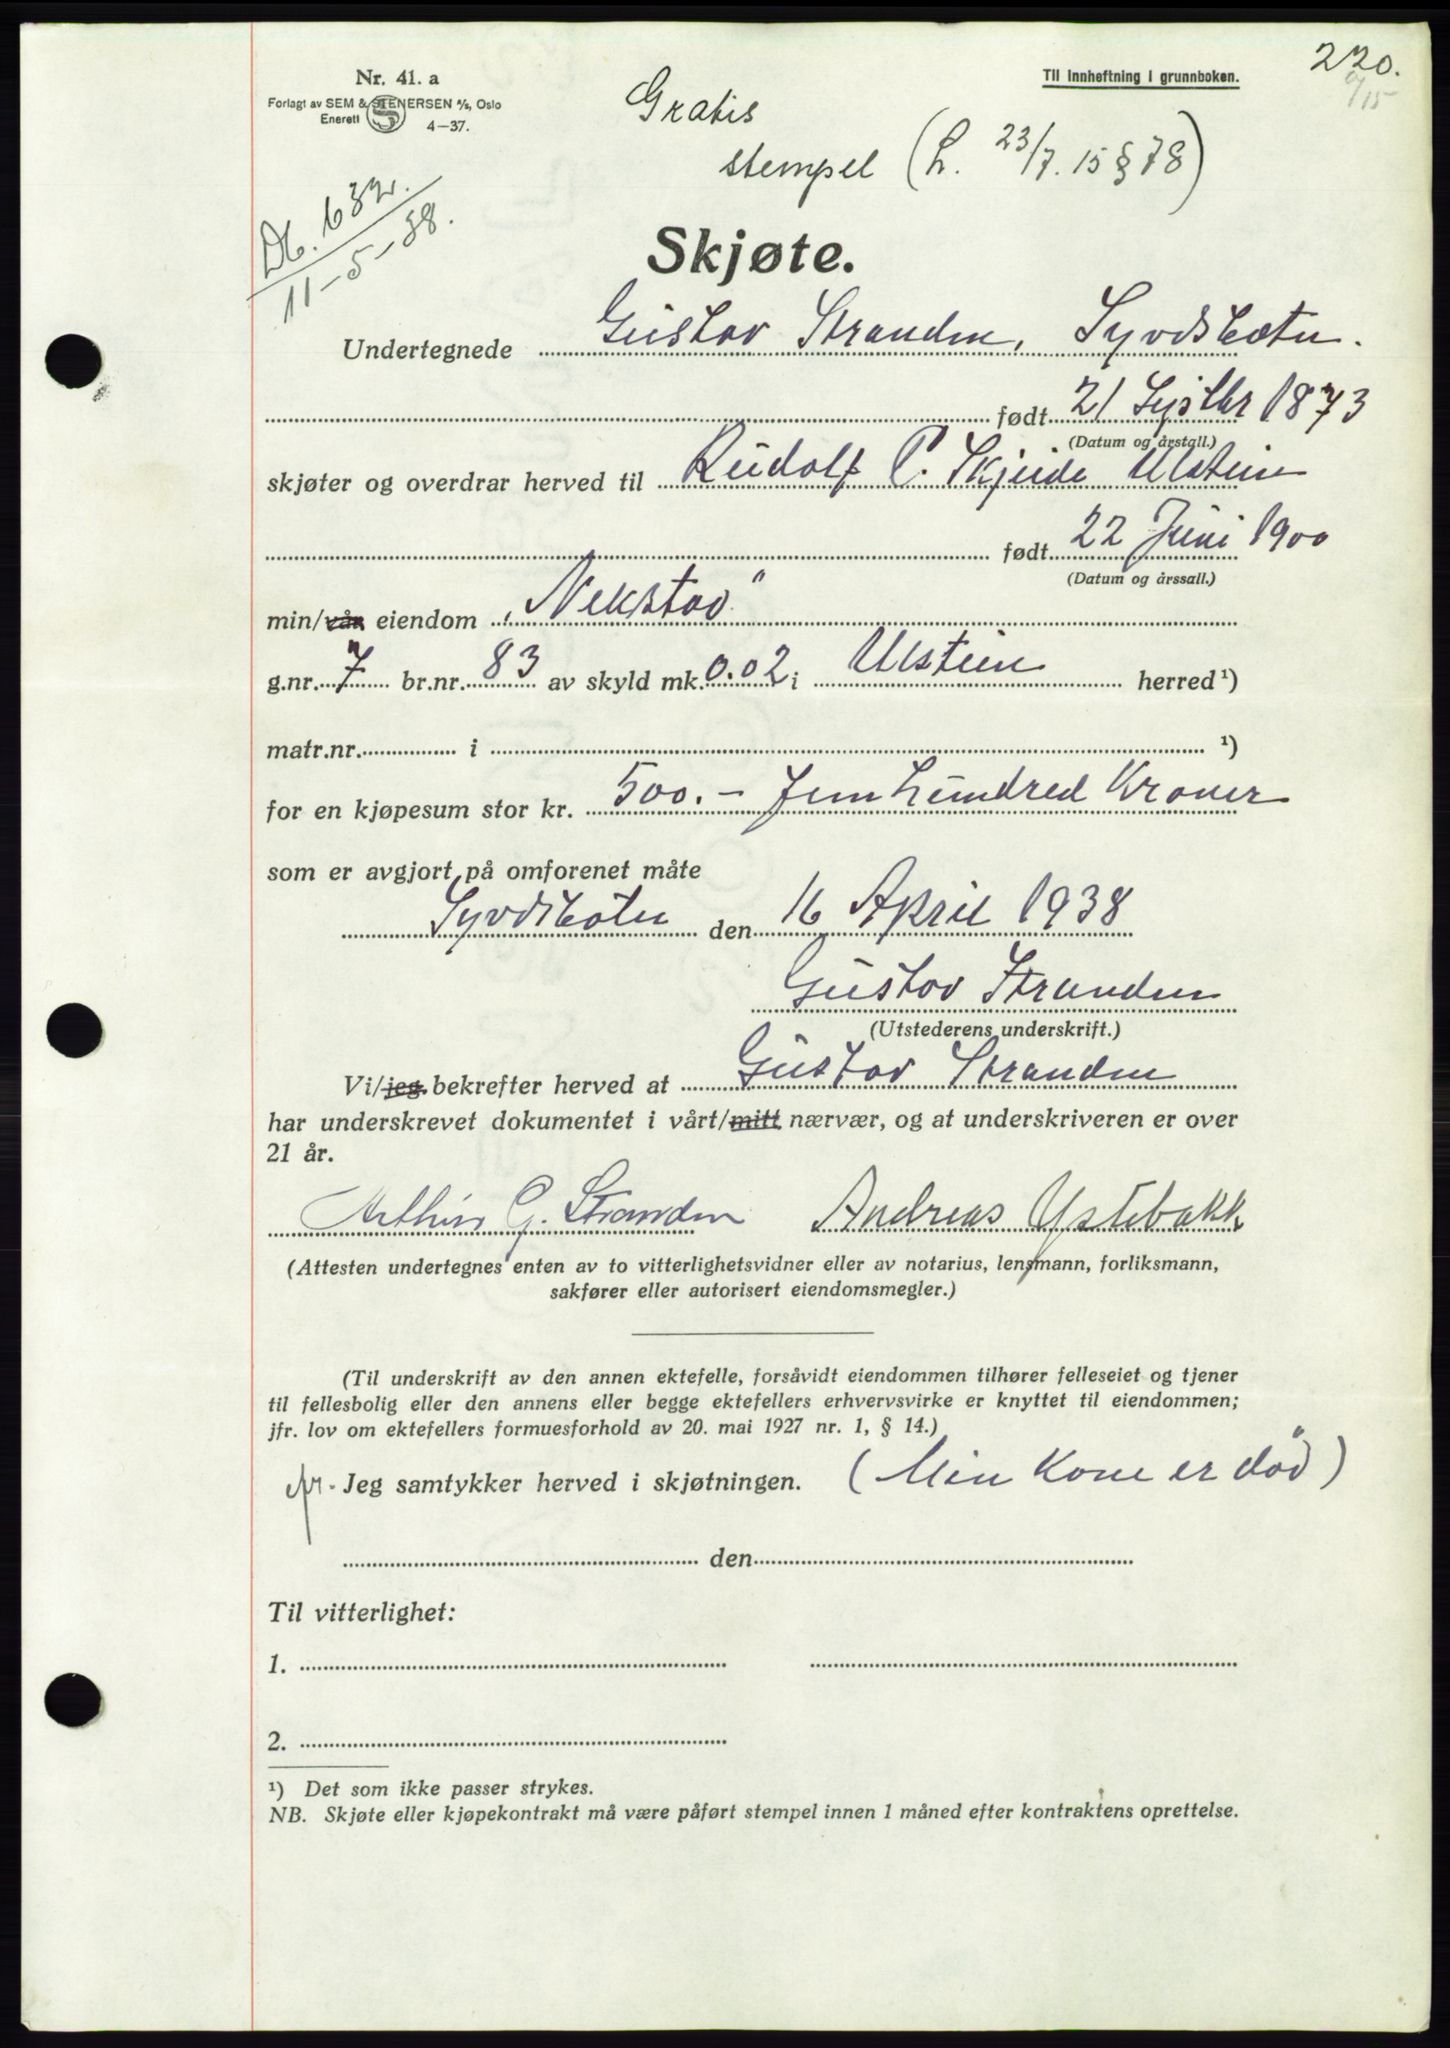 220.
Nr. 41. a
Til innheftning i grunnboken.
Forlagt av SEM & STENERSEN A/S, Oslo
Enerett
4—37.
Gratis
stempel (L. 23/7. 15 § 78)
Db. 632.
11-5-38.
Skjøte.
Undertegnede Gustav Stranden, Syvdsbotn.
født 21 Septbr 1873
(Datum og årstall.)
skjøter og overdrar herved til Rudolf P. Skjeide Ulstein
født 22 Juni 1900
(Datum og årssall.)
min/vår eiendom „Nekstad"
g.nr. 7 br.nr. 83 av skyld mk. 0.02 i Ulstein herred ¹)
matr.nr. i ¹)
for en kjøpesum stor kr. 500.- Fem hundred Kroner
som er avgjort på omforenet måte
Syvdsbotn den 16 April 1938
Gustav Stranden
(Utstederens underskrift.)
Vi/jeg bekrefter herved at Gustav Stranden
har underskrevet dokumentet i vårt/mitt nærvær, og at underskriveren er over
21 år.
Arthur G. Stranden Andreas Ystebakk
(Attesten undertegnes enten av to vitterlighetsvidner eller av notarius, lensmann, forliksmann,
sakfører eller autorisert eiendomsmegler.)
(Til underskrift av den annen ektefelle, forsåvidt eiendommen tilhører felleseiet og tjener
til fellesbolig eller den annens eller begge ektefellers erhvervsvirke er knyttet til eiendommen;
jfr. lov om ektefellers formuesforhold av 20. mai 1927 nr. 1, § 14.)
Jeg samtykker herved i skjøtningen. (Min Kone er död)
den
Til vitterlighet:
1.
2.
¹) Det som ikke passer strykes.
NB. Skjøte eller kjøpekontrakt må være påført stempel innen 1 måned efter kontraktens oprettelse.